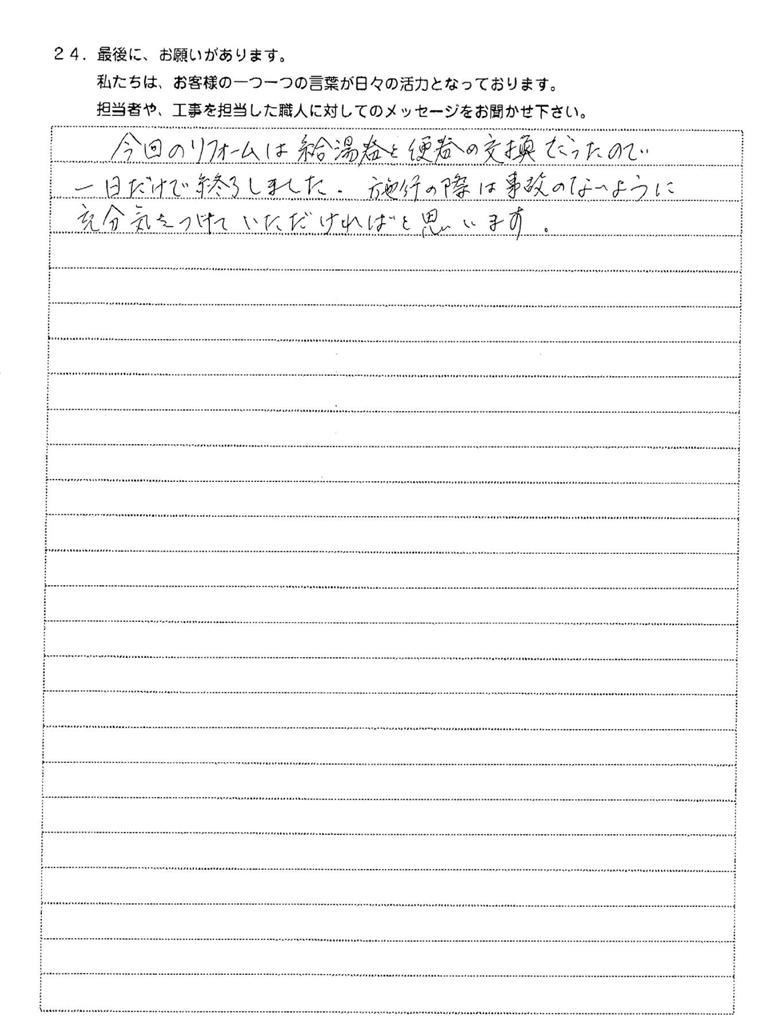 24. 最後に、お願いがあります。
私たちは、お客様の一つ一つの言葉が日々の活力となっております。
担当者や、工事を担当した職人に対してのメッセージをお聞かせ下さい。
今回のリフォームは給湯器と便器の交換だったので
一日だけで終了しました。施行の際は事故のないように
充分気をつけていただければと思います。